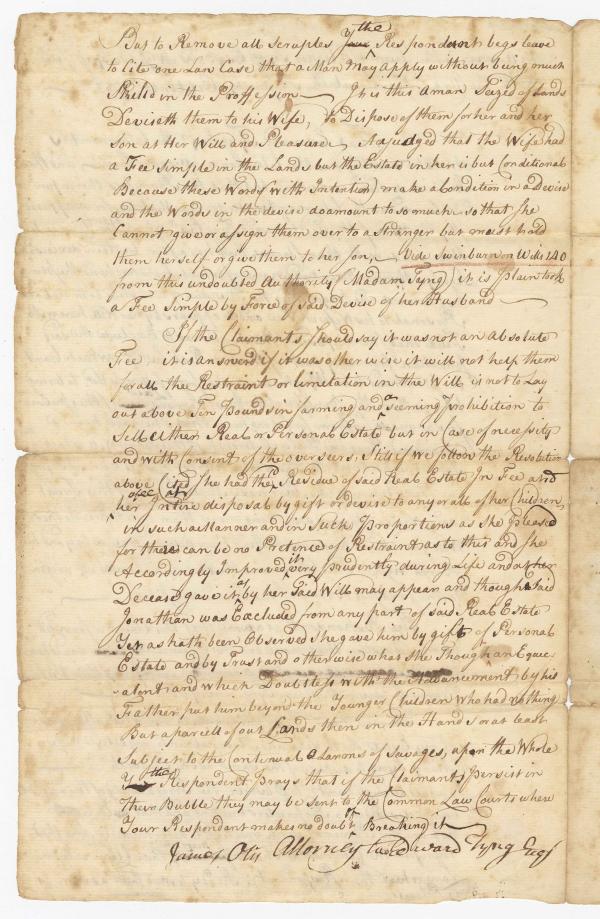 the
But to Remove all scruples your Respondant begs leave
to Cite one Law Case that a Man may apply without being much
Skilld in the Proffession — It is this a man Seized of Lands
Deviseth them to his Wife, to Dispose of them for her and her
Son at Her Will and Pleasure, Adjudged that the Wife had
a Fee Simple in the Lands but the Estate in her is but Conditional
Because these Words (with Intention) make a Condition in a Devise
and the Words in the devise do amount to so much so that she
Cannot give or assign them over to a Stranger but must hold
them herself or give them to her son, — Vide Swinburn on Wills 140
from this undoubted Authority (Madam Tyng) it is plain took
a Fee Simple by Force of said Devise of her Husband —
If the Claimants should say it was not an Absolute
Fee it is answerd if it was other wise it will not help them
for all the Restraint or limitation in the Will is not to Lay
out above Ten Pounds in farming and a Seeming Prohibition to
Sell Either Real or Personal Estate but in Case of necessity
and with Consent of the overseers, Still if we follow the Resolution
above Cited She had the Residue of said Real Estate In Fee and
at her Intire disposal by gift or devise to any or all of her Children,
in such a Manner and in Such Proportions as She Pleased
for there can be no Pretence of Restraint as to this and she
Accordingly Improved it very prudently during Life and at her
Decease gave it as by her Said Will may appear and though Said
Jonathan was Excluded from any part of said Real Estate
Yet as hath been Observed she gave him by gift of Personal
Estate and by Trust and otherwise what she Though an Equiv-
-alent and which Doubtless with the Advancement by his
Father put him beyond the Younger Children who had nothing
But a parcel of out Lands then in the Hands or at least
Subject to the Continual Alarms of Savages, upon the Whole
the Respondent Prays that if the Claimants Persist in
Their Bubble they may be sent to the Common Law Courts where
Your Respondant makes no doubt of Breaking it
James Otis Attorney to Edward Tyng Esqr